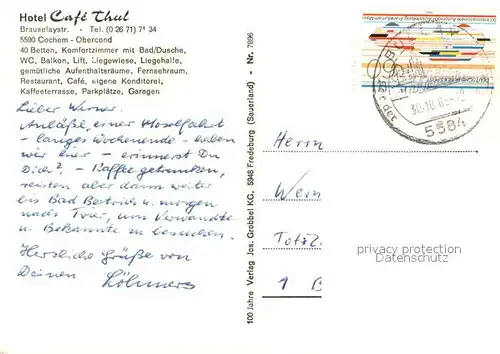 Hotel Café Thul
Brauselaystr. - Tel. (0 26 71) 71 34
5590 Cochem - Obercond
40 Betten, Komfortzimmer mit Bad/Dusche,
WC, Balkon, Lift, Liegewiese, Liegehalle,
gemütliche Aufenthaltsräume, Fernsehraum,
Restaurant, Café, eigene Konditorei,
Kaffeeterrasse, Parkplätze, Garagen
Lieber Werner.
Anläßl. einer Moselfahrt
- langes Wochenende - haben
wir hier - erinnerst Du
Dich? - Kaffee getrunken,
reisten aber dann weiter
bis Bad Bertrich u. morgen
nach Trier, um Verwandte
u. Bekannte zu besuchen.
Herzliche Grüße von
Deinen Löhmers
100 Jahre Verlag Jos. Grobbel KG, 5948 Fredeburg (Sauerland) - Nr. 7896
30.10.
5584
Herrn
Wern
Totzl.
1 B
privacy protection
AnsichtskartenCenter